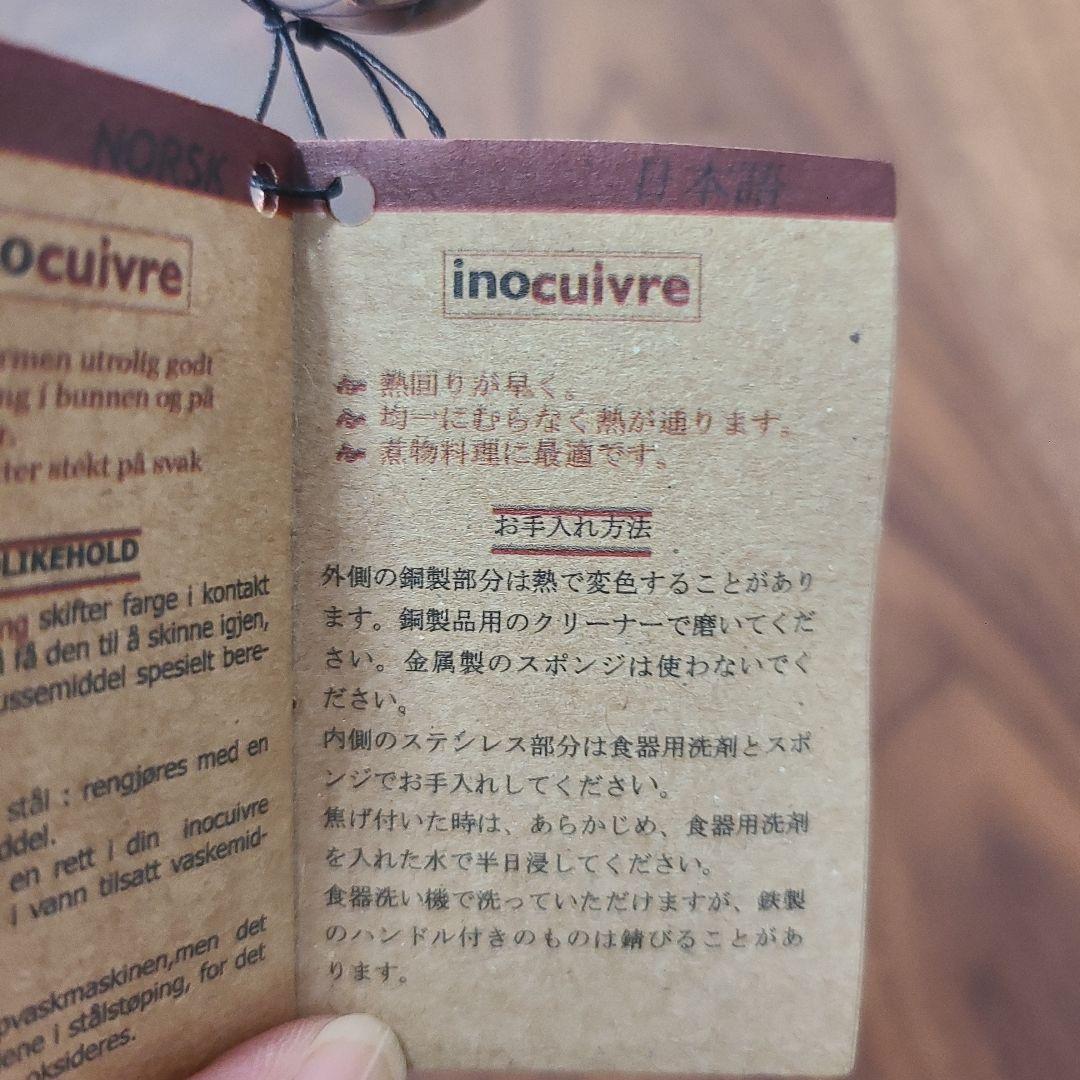 NORSK
ocuivre
rmen utrolig godt
ng i bunnen og på
ter stekt på svak
LIKEHOLD
ng skifter farge i kontakt
få den til å skinne igjen,
ussemiddel spesielt bere-
stål : rengjøres med en
ddel.
en rett i din inocuivre
i vann tilsatt vaskemid-
pvaskmaskinen,men det
ene i stålstøping, for det
oksideres.
日本語
inocuivre
熱回りが早く。
均一にむらなく熱が通ります。
煮物料理に最適です。
お手入れ方法
外側の銅製部分は熱で変色することがあり
ます。銅製品用のクリーナーで磨いてくだ
さい。金属製のスポンジは使わないでく
ださい。
内側のステンレス部分は食器用洗剤とスポ
ンジでお手入れしてください。
焦げ付いた時は、あらかじめ、食器用洗剤
を入れた水で半日浸してください。
食器洗い機で洗っていただけますが、鉄製
のハンドル付きのものは錆びることがあ
ります。